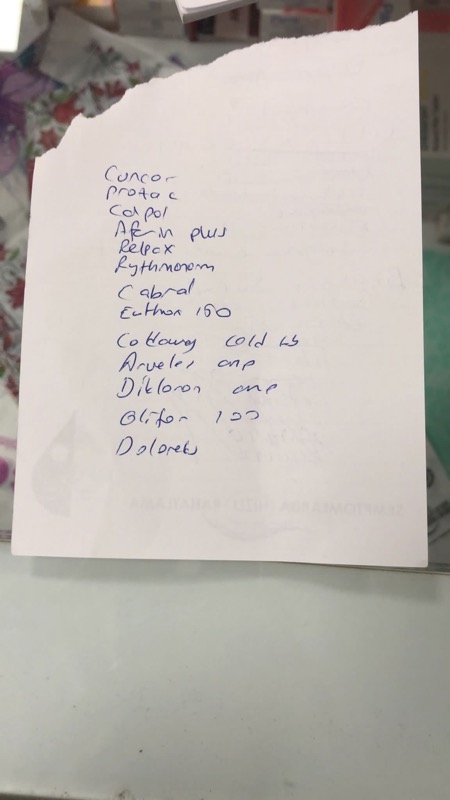 Cuncor
prozac
Calpol
Aferin plus
Relpax
Rythmonorm
Cabral
Euthox 150
Coldaway cold tb
Arveles amp
Dikloron amp
Glifor 1000
Dolorets